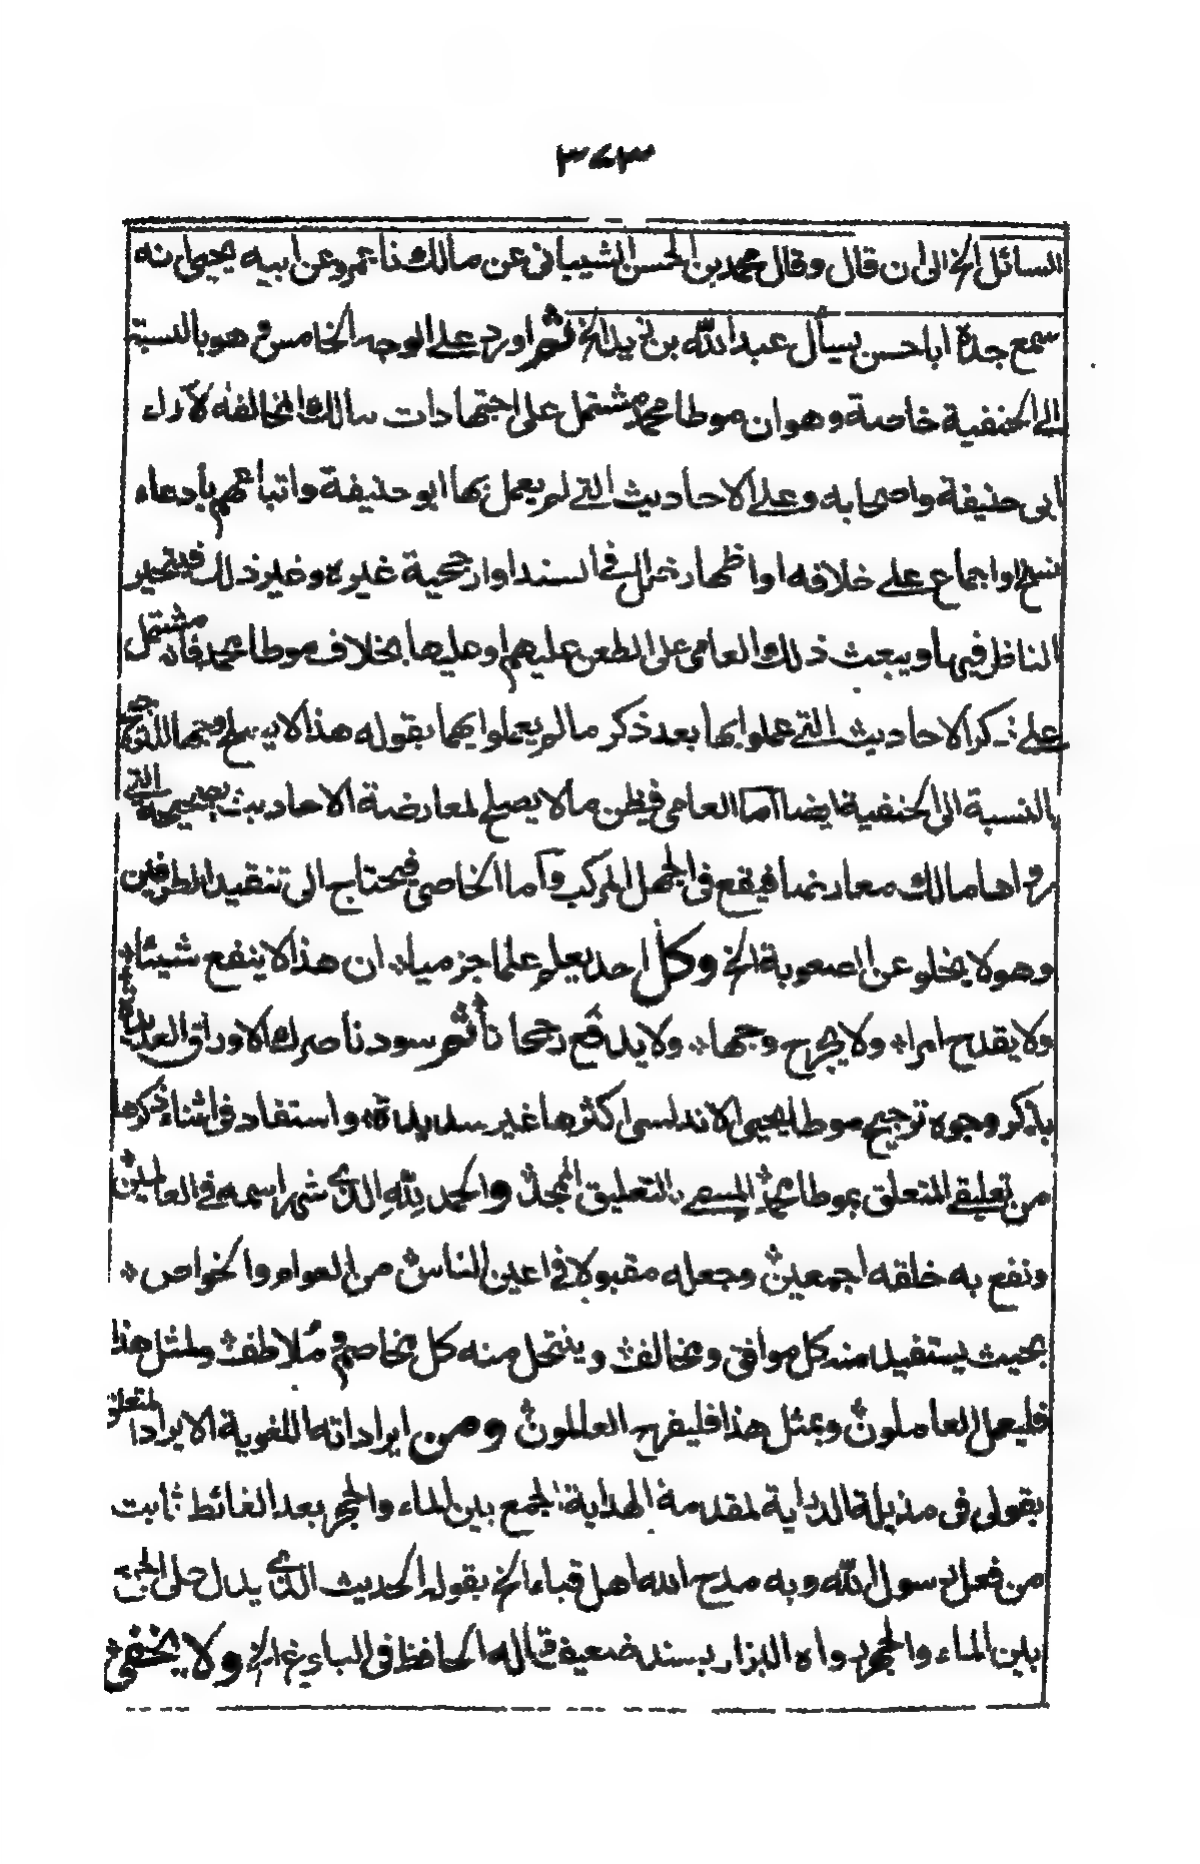 ٣٧٣
السائل الخ الى ان قال وقال محمد بن الحسن الشيبانى عن مالك نا عمرو عن ابيه يحيى انه
سمع جده ابا حسن يسأل عبد الله بن زيد الخ ثم اورد على الوجه الخامس وهو بالنسبة
الى الحنفية خاصة وهو ان موطا محمد مشتمل على اجتهادات مالك المخالفة لآراء
ابى حنيفة واصحابه وعلى الاحاديث التى لم يعمل بها ابو حنيفة واتباعهم بادعاء
نسخ او اجماع على خلافه او اظهار خلل فى السند او ارجحية غيره وغير ذلك فيتحير
الناظر فيها ويبعث ذلك العامى على الطعن عليهم او عليها بخلاف موطا محمد فانه مشتمل
على ذكر الاحاديث التى عملوا بها بعد ذكر ما لم يعملوا بها بقوله هذا لا يصلح وجها للترجيح
بالنسبة الى الحنفية ايضا اما العامى فيظن ما لا يصلح لمعارضة الاحاديث الصحيحة التى
رواها مالك معارضا فيقع فى الجهل المركب واما الخاصى فيحتاج الى تنقيد الطرفين
وهو لا يخلو عن الصعوبة الخ وكل احد يعلم علما جزميا ان هذا لا ينفع شيئا
ولا يقدح امرا ولا يجرح وجها ولا يدفع رجحانا ثم سود ناصرك الاوراق العديدة
بذكر وجوه ترجيح موطا يحيى الاندلسى اكثرها غير سديدة واستفاد فى اثناء ذكرها
من تعليقى المتعلق بموطا محمد المسمى بالتعليق الممجد والحمد لله الذى شهر اسمه فى العالمين
ونفع به خلقه اجمعين وجعله مقبولا فى اعين الناس من العوام والخواص
بحيث يستفيد منه كل موافق ومخالف وينتحل منه كل مخاصم وملاطف ولمثل هذا
فليعمل العاملون وبمثل هذا فليفرح العالمون ومن ايراداته اللغوية الايراد المتعلق
بقولى فى مذيلة الدراية لمقدمة الهداية الجمع بين الماء والحجر بعد الغائط ثابت
من فعل رسول الله وبه مدح الله اهل قباء الخ بقوله الحديث الذى يدل على الجمع
بين الماء والحجر رواه البزار بسند ضعيف قاله الحافظ فى البلوغ الخ ولا يخفى